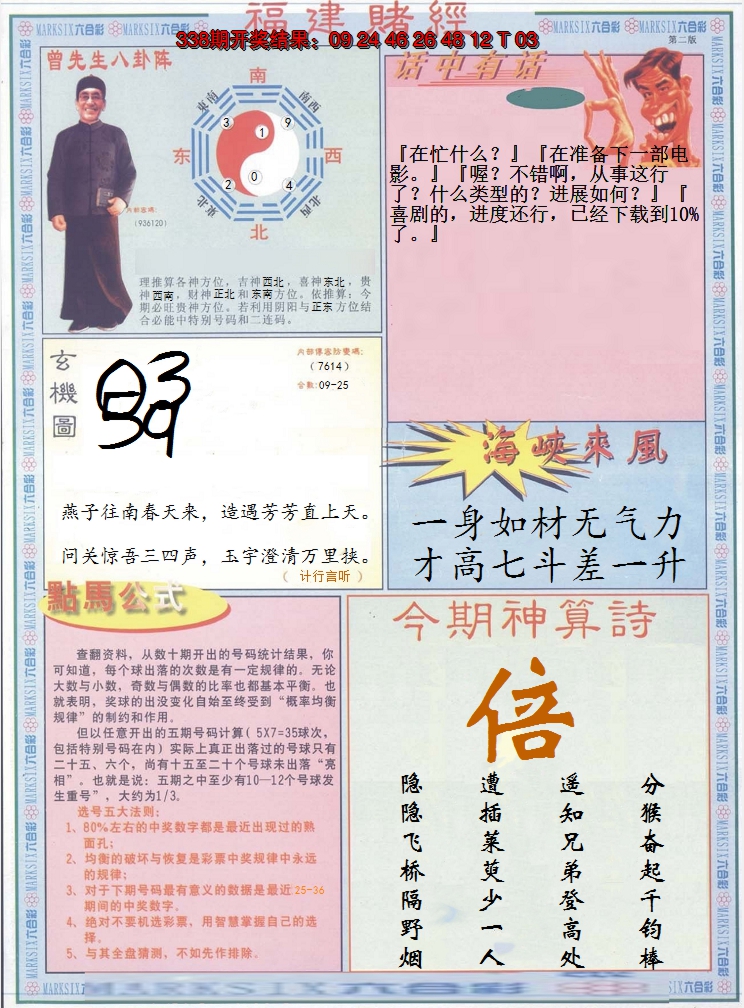 福建賭經
338期开奖结果：09 24 46 26 48 12 T 03
第二版
曾先生八卦阵
南
东南
西南
3
1
9
东
西
2
0
4
東北
西北
北
内部密碼:
(936120)
理推算各神方位，吉神西北，喜神东北，贵
神西南，财神正北和东南方位。依推算：今
期必旺贵神方位。若利用阴阳与正东方位结
合必能中特别号码和二连码。
话中有话
『在忙什么？』『在准备下一部电
影。』『喔？不错啊，从事这行
了？什么类型的？进展如何？』『
喜剧的，进度还行，已经下载到10%
了。』
玄機圖
（7614）
合数:09-25
燕子往南春天来，造遇芳芳直上天。
问关惊吾三四声，玉宇澄清万里挟。
（ 计行言听 ）
海峽來風
一身如材无气力
才高七斗差一升
點馬公式
查翻资料，从数十期开出的号码统计结果，你
可知道，每个球出落的次数是有一定规律的。无论
大数与小数，奇数与偶数的比率也都基本平衡。也
就表明，奖球的出没变化自始至终受到“概率均衡
规律”的制约和作用。
但以任意开出的五期号码计算( 5X7=35球次，
包括特别号码在内）实际上真正出落过的号球只有
二十五、六个，尚有十五至二十个号球未出落“亮
相”。也就是说：五期之中至少有10—12个号球发
生重号”，大约为1/3。
选号五大法则：
1、80%左右的中奖数字都是最近出现过的熟
面孔；
2、均衡的破坏与恢复是彩票中奖规律中永远
的规律；
3、对于下期号码最有意义的数据是最近25-36
期间的中奖数字。
4、绝对不要机选彩票，用智慧掌握自己的选
择。
5、与其全盘猜测，不如先作排除。
今期神算詩
倍
分猴奋起千钧棒
遥知兄弟登高处
遭插莱萸少一人
隐隐飞桥隔野烟
MARKSIX六合彩